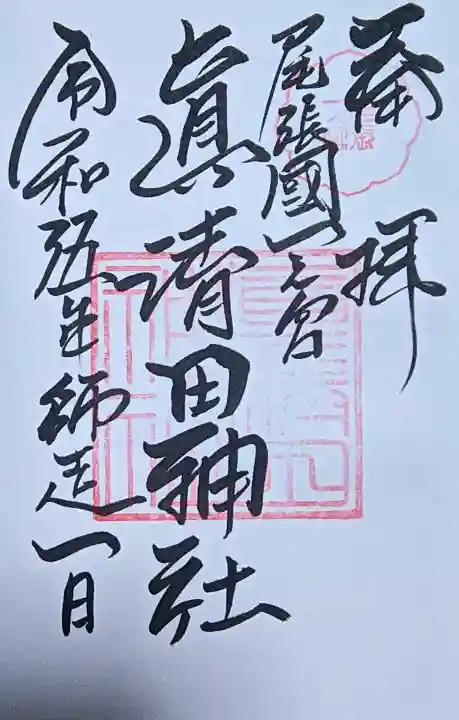 奉拝
尾張國一之宮
真清田神社
令和伍年師走一日